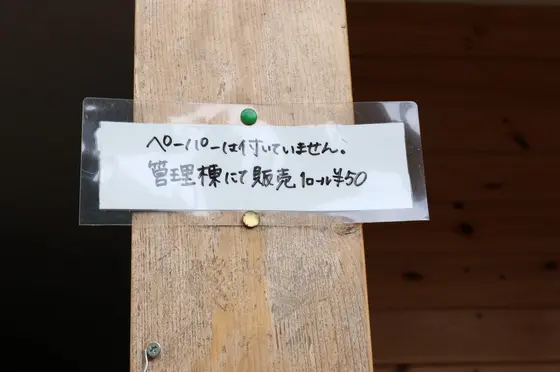 ペーパーは付いていません。
管理棟にて販売 1ロール ¥50